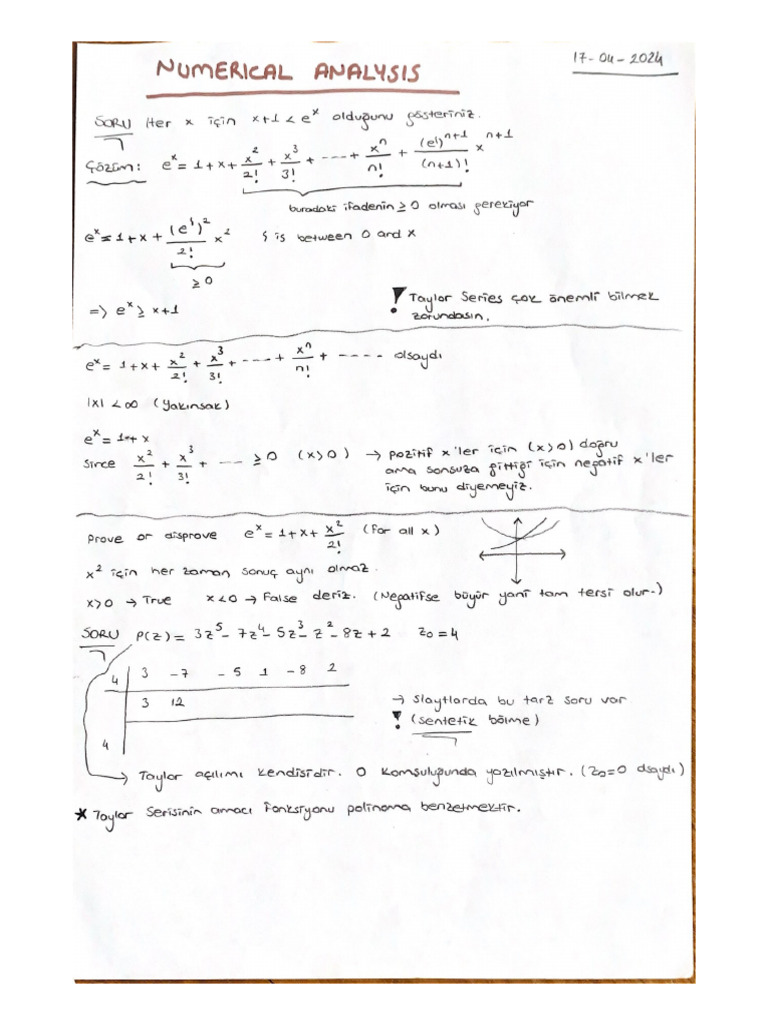 NUMERICAL ANALYSIS
17-04-2024
SORU Her x için x+1 < e^x olduğunu gösteriniz.
Çözüm: e^x = 1 + x + x^2/2! + x^3/3! + ---- + x^n/n! + (e^ξ)^{n+1}/(n+1)! x^{n+1}
buradaki ifadenin ≥ 0 olması gerekiyor
e^x = 1 + x + (e^ξ)^2/2! x^2 ξ is between 0 and x
≥ 0
=> e^x ≥ x+1
! Taylor Series çok önemli bilmek
zorundasın.
e^x = 1 + x + x^2/2! + x^3/3! + ---- + x^n/n! + ---- olsaydı
|x| < ∞ (Yakınsak)
e^x = 1 + x
Since x^2/2! + x^3/3! + --- ≥ 0 (x>0) → pozitif x'ler için (x>0) doğru
ama sonsuza gittiği için negatif x'ler
için bunu diyemeyiz.
Prove or disprove e^x = 1 + x + x^2/2! (for all x)
x^2 için her zaman sonuç aynı olmaz.
x>0 → True x<0 → False deriz. (Negatifse büyür yani tam tersi olur.)
SORU P(z) = 3z^5 - 7z^4 - 5z^3 - z^2 - 8z + 2 z0 = 4
4 3 -7 -5 1 -8 2
3 12
4
→ Slaytlarda bu tarz soru var
! (sentetik bölme)
→ Taylor açılımı kendisidir. 0 komşuluğunda yazılmıştır. (z0=0 olsaydı)
* Taylor Serisinin amacı fonksiyonu polinoma benzetmektir.